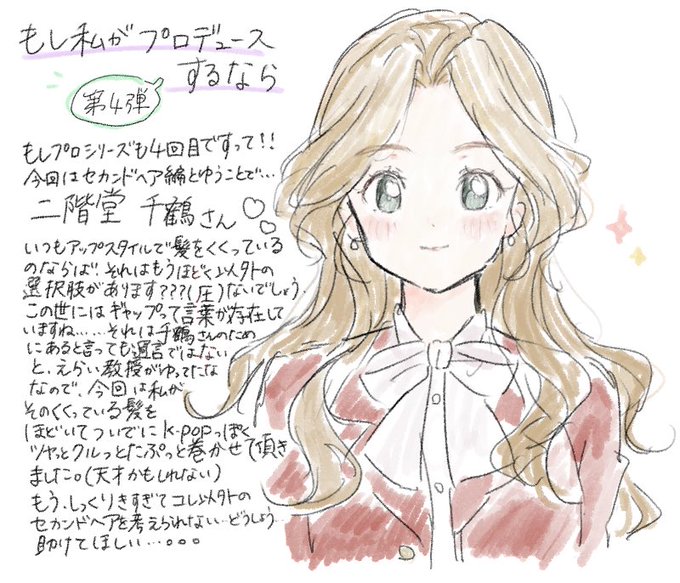 もし私がプロデュース
するなら
第4弾
もしプロシリーズも4回目ですって!!
今回はセカンドヘア編とゆうことで…
二階堂 千鶴さん♡♡
いつもアップスタイルで髪をくくっている
のならば、それはもうほどく以外の
選択肢があります???(圧)ないでしょう。
この世にはギャップって言葉が存在して
いますね……それは千鶴さんのため
にあると言っても過言ではない
と、えらい教授がゆってたな
なので、今回は私が
そのくくっている髪を
ほどいてついでにk-popっぽく
ツヤっとクルっとたぷっと巻かせて頂き
ました。(天才かもしれない)
もう、しっくりきすぎてコレ以外の
セカンドヘアを考えられない…どうしよう…
助けてほしい…。。。